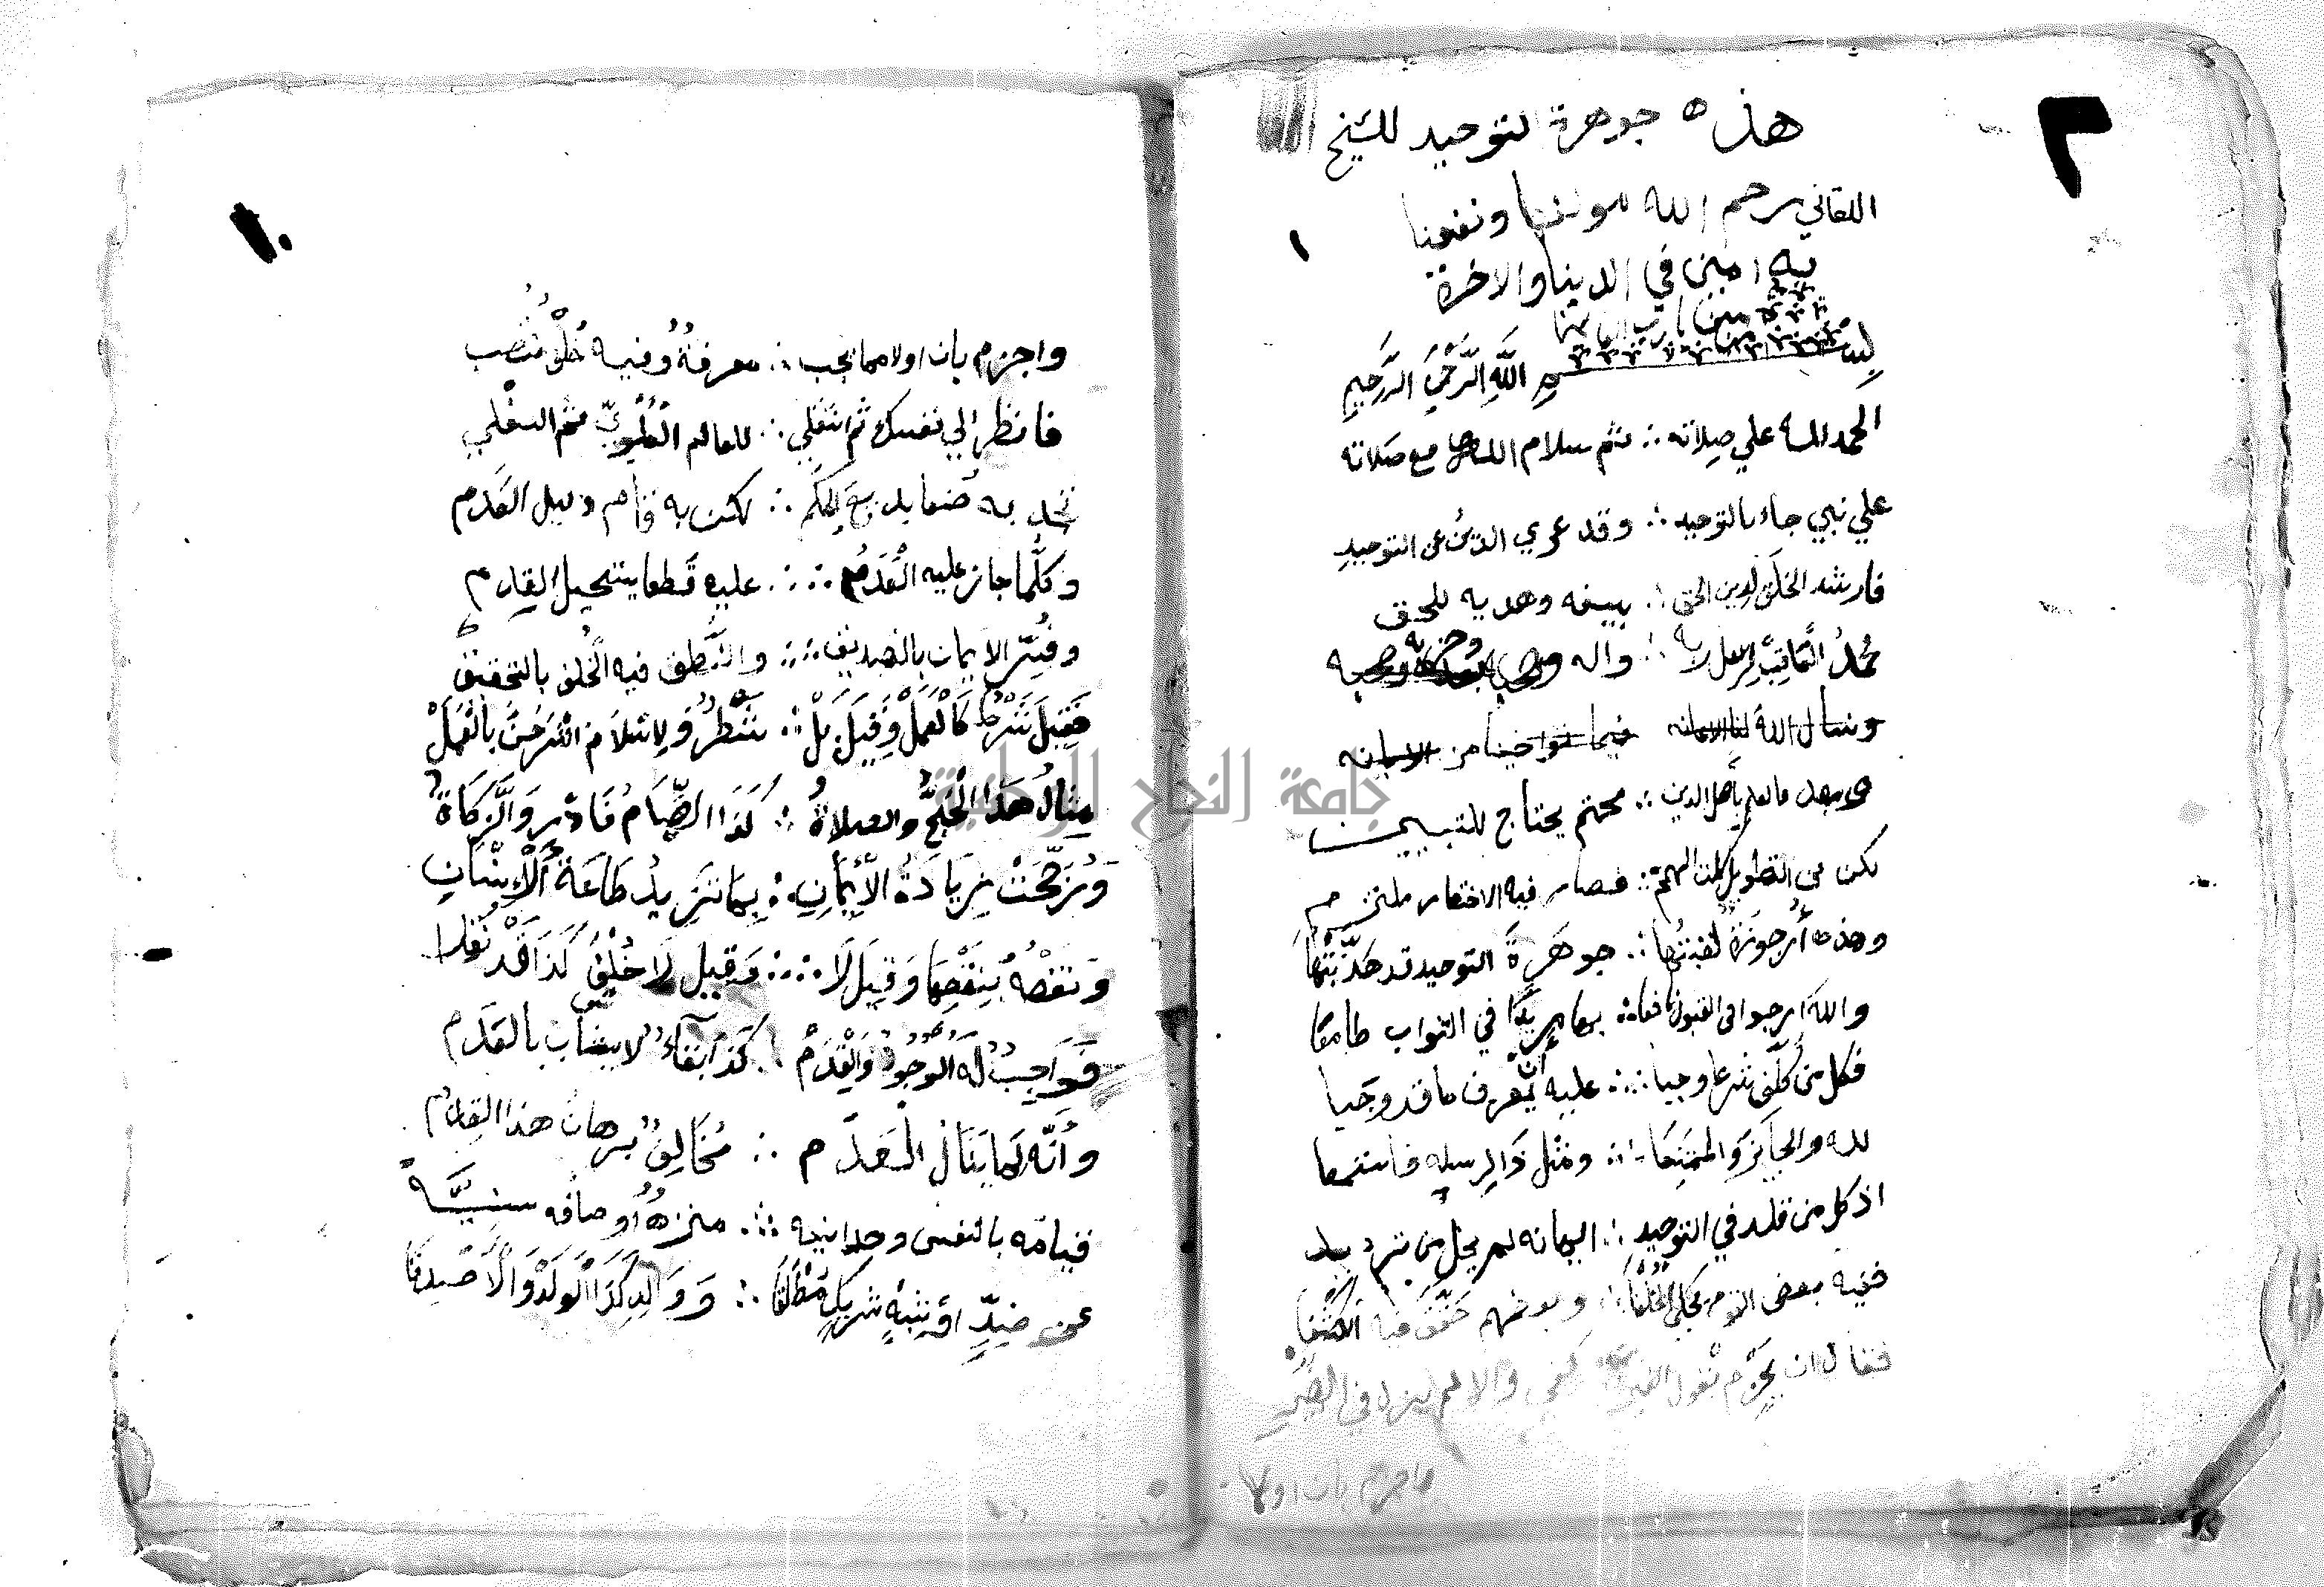 هذه جوهرة التوحيد للشيخ
اللقاني رحم الله مولفها ونفعنا
به امين في الدينا والاخرة
امين يارب
بسم الله الرَّحمن الرَّحيمِ
الحمد لله علي صِلاته ∴ ثم سلام الله مع صَلاته
علي نبي جاء بالتوحيد ∴ وقد عري الدين عن التوحيدِ
فارشد الخلق لدين الحق ∴ بسيفه وهديه للحق
محمدُ العَاقِب لرسل ربه ∴ واله وصحبه وحزبه
ونسال اللهَ لنا الامانه فيما تواخينا من الامانه
وبعد فالعلم باصل الدين ∴ محتم يحتاج للتبييـن
لكن من التطويل كلت الهمم ∴ فصار فيه الاختصار ملتزم
وهذه أرجوزة لقبتُها ∴ جوهَرةَ التوحيد قد هَذَّبْتُها
واللهَ ارجوا في القبول نافعا ∴ بها مريدًا في الثواب طامعًا
فكل من كلّف شرعا وجبا ∴ عليه أنْ يعرف ما قد وجَبا
لله والجايز والممتنِعَا ∴ ومثل ذا لرسله فاستمعا
اذ كل من قلد في التوحيدِ ∴ ايمانه لم يخل من ترديد
ففيه بعض القوم يحكي الخُلْفَا ∴ وبعضهم حَقَّقَ فيه الكَشْفَا
فقال ان يجزم بقول الغير كفي والا لم يزل في الضير
واجزم بان اولا
واجزم بان اولا مما يجب ∴ معرفةُ وفيه خُلْفُ منتصب
فانظر الي نفسك ثم انتقلي ∴ للعالم العُلْويّ ثم السفلي
تجد به صنعا بديع الحِكَم ∴ لكن به قام دليل العَدَم
وكلُّما جاز عليه العَدَمُ ∴ عليه قَطعا يستحيل القِدم
وفُسِّر الايمان بالتصديق ∴ والنُّطق فيه الخُلف بالتحقيق
فَقِيلَ شَرْطُ كَالْعَمَلْ وَقِيلَ بَلْ ∴ شَطْرُ وَلِاسْلَامَ اشرَحَنَّ بالْعَمَلْ
مِثَالُ هَذَا الْحَجُّ والصلاةُ ∴ كَذَا الصِّيَامُ فَادْرِ وَالَّزكَاةُ
وَرُجِّحَتْ زِيَادَةُ الْأِيمَانِ ∴ بِمَا تَزِيدُ طَاعَةُ الْإِنْسَانِ
وَنقْصُهُ بِنَقْصِهَا وَقِيلَ لَا ∴ وَقِيلَ لَا خُلْفُ كَذَا قَدْ نُقلا
فَوَاجِبُ لَه الْوُجُودُ وَالْقِدَمْ ∴ كَذَا بَقَاءُ لا يشاب بالعَدَم
وأَنَّه لما يَنَالُ الْعَدَم ∴ مُخَالِفُ برهان هذا القِدم
قيامُه بالنفس وحدانيه ∴ منزهًا أوصافه سنيَّـه
عن ضِدٍّ اوْ شبْهٍ شريكٍ مُطْلَقَا ∴ وَوَالِدٍ كَذَا الْوَلَدْ وَالْأَصْدِقَا
جامعة النجاح الوطنية